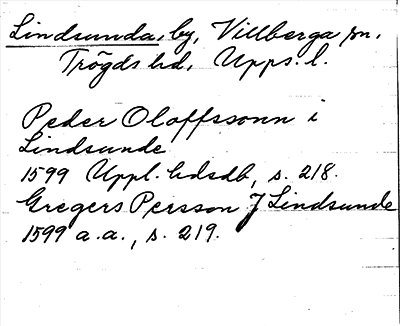 Lindsunda, by, Villberga sn.
Trögds hd. Upps. l.
Peder Oloffssonn i
Lindsunde
1599 Uppl. hdsdb, s. 218.
Gregers Persson J Lindsunde
1599 a.a., s. 219.